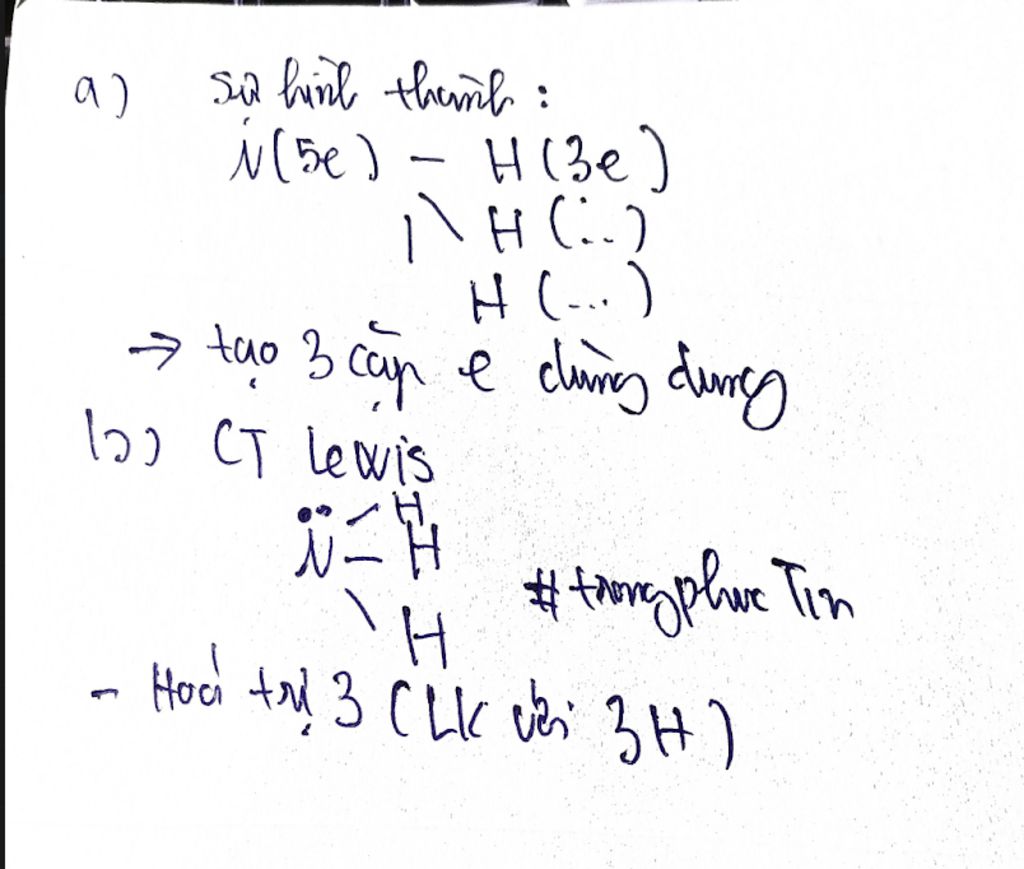 a) Sự hình thành :
N(5e) — H(3e)
| \ H (...)
H (...)
→ tạo 3 cặp e dùng dung
b) CT Lewis
N̈ H
— H
\ H
#trongphucTin
- Hoá trị 3 (LK với 3H)